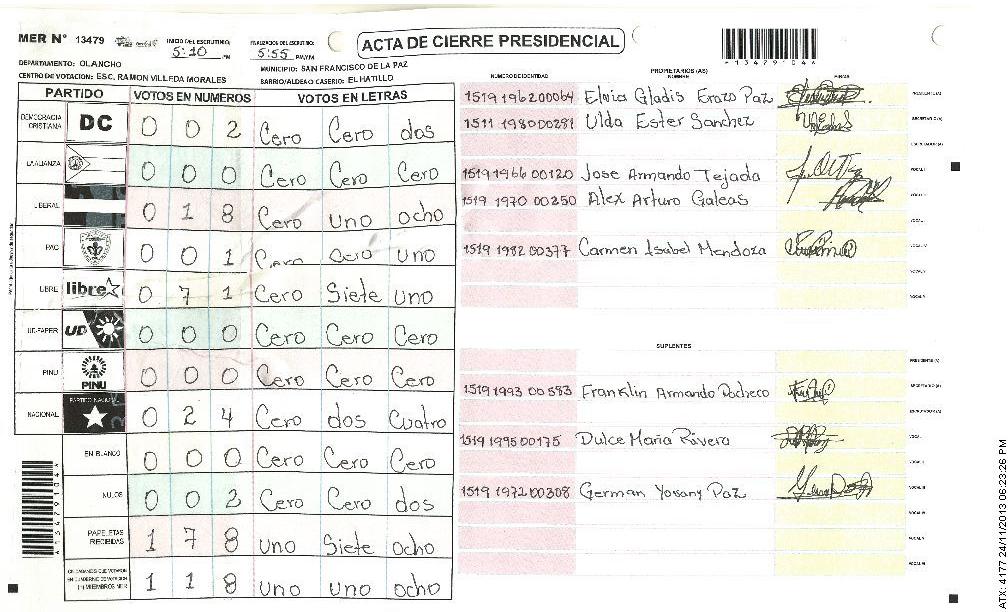 MER N° 13479
INICIO DEL ESCRUTINIO:
5:10 PM
FINALIZACION DEL ESCRUTINIO:
5:55 PM/YM
ACTA DE CIERRE PRESIDENCIAL
*13479104*
DEPARTAMENTO: OLANCHO
MUNICIPIO: SAN FRANCISCO DE LA PAZ
CENTRO DE VOTACION: ESC. RAMON VILLEDA MORALES
BARRIO/ALDEA O CASERIO: EL HATILLO
PARTIDO VOTOS EN NUMEROS VOTOS EN LETRAS
DEMOCRACIA CRISTIANA DC 0 0 2 Cero Cero dos
LA ALIANZA 0 0 0 Cero Cero Cero
LIBERAL 0 1 8 Cero uno ocho
PAC 0 0 1 Cero cero uno
LIBRE libre 0 7 1 Cero Siete uno
UD-FAPER UD 0 0 0 Cero Cero Cero
PINU PINU 0 0 0 Cero Cero Cero
NACIONAL PARTIDO NACIONAL 0 2 4 Cero dos cuatro
EN BLANCO 0 0 0 Cero Cero Cero
NULOS 0 0 2 Cero Cero dos
PAPELETAS RECIBIDAS 1 7 8 uno Siete ocho
CIUDADANOS QUE VOTARON EN CUADERNO DE VOTACION (+) MIEMBROS MER 1 1 8 uno uno ocho
PROPIETARIOS (AS)
NUMERO DE IDENTIDAD NOMBRE FIRMAS
1519 1962 00064 Elvia Gladis Erazo Paz PRESIDENTE(A)
1511 1980 00281 Ulda Ester Sanchez SECRETARIO(A)
ESCRUTADOR(A)
1519 1966 00120 Jose Armando Tejada VOCAL I
1519 1970 00250 Alex Arturo Galeas VOCAL II
VOCAL III
1519 1982 00377 Carmen Isabel Mendoza VOCAL IV
VOCAL V
VOCAL VI
SUPLENTES
PRESIDENTE(A)
1519 1993 00583 Franklin Armando Pacheco SECRETARIO(A)
ESCRUTADOR(A)
1519 1995 00175 Dulce Maria Rivera VOCAL I
VOCAL II
1519 1972 00308 German Yovany Paz VOCAL III
VOCAL IV
VOCAL V
VOCAL VI
*13479104*
ATX: 4177 24/11/2013 06:23:26 PM